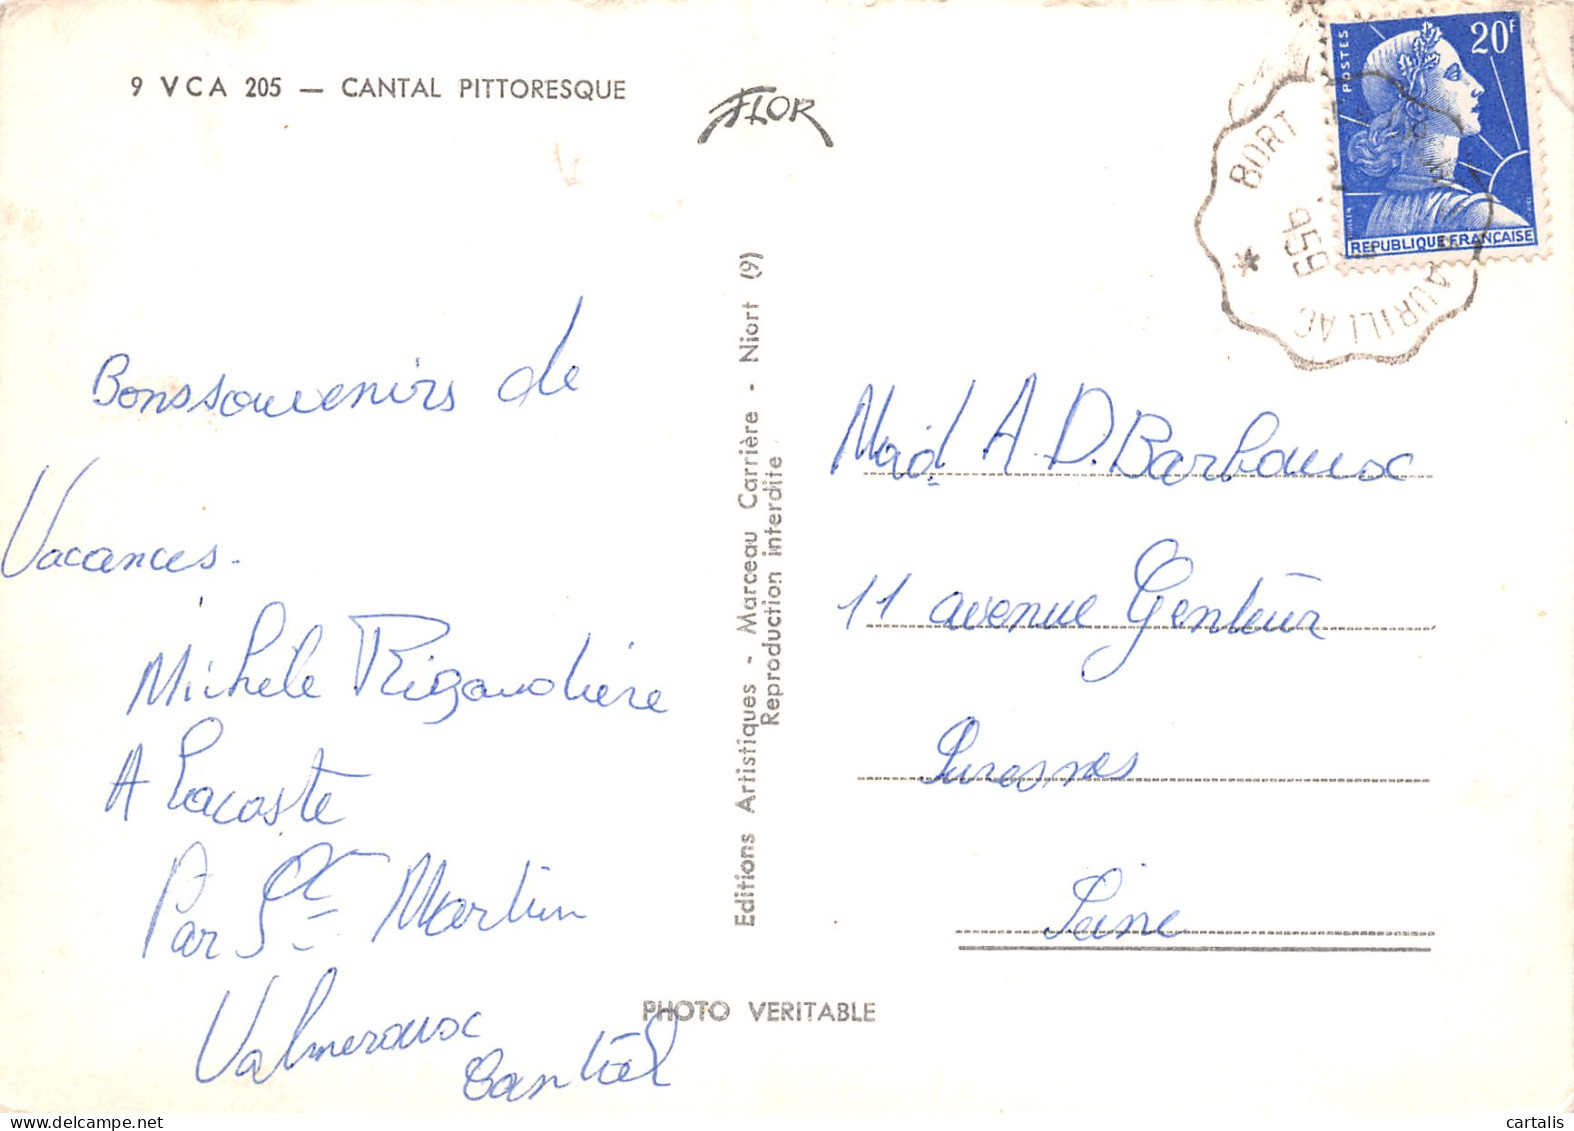 9 VCA 205 — CANTAL PITTORESQUE
FLOR
POSTES
20F
REPUBLIQUE FRANCAISE
BORT
AURILLAC
959
Bons souvenirs de
Vacances.
Michèle Rigaudière
A Lacoste
Par St Martin
Valmeroux
Cantal
Editions Artistiques - Marceau Carrière - Niort (9)
Reproduction interdite
Mad. A D. Barbaux
11 avenue Genteur
Suresnes
Seine
PHOTO VERITABLE
cartalis